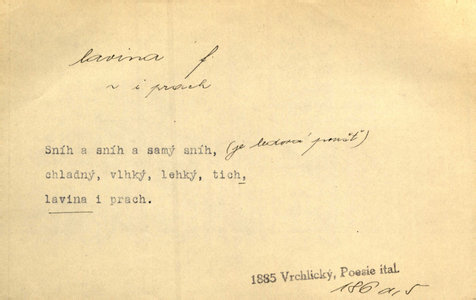 lavina f.
v i prach
Sníh a sníh a samý sníh, (je ledová poušť)
chladný, vlhký, lehký, tich,
lavina i prach.
1885 Vrchlický, Poesie ital.
186 a, 5